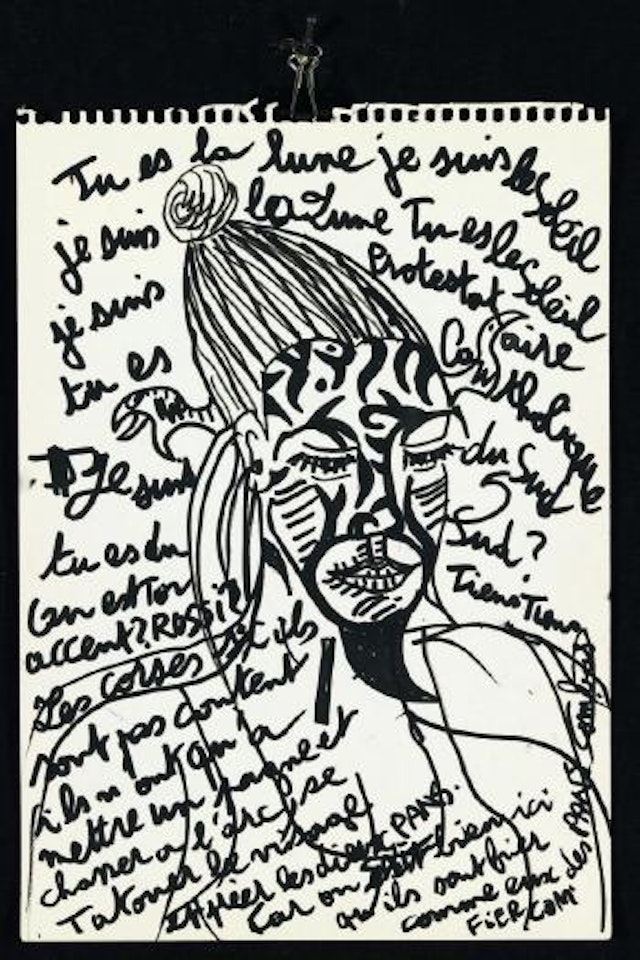 Tu es la lune je suis le Soleil
je suis la Lune Tu es le Soleil
je suis Protestataire
tu es Catholique
Je suis du Sud
tu es du Sud?
Tiens Tiens
Où en est Ton
accent? ROSSI?
Les corses si ils
sont pas content
ils n'ont qu'a
mettre un pagne et
chasser a l'arc, se
Tatouer le visage
et prier les dieux PANS.
Car on est bien ici
qu'ils sont fier
comme eux des PANS
FiER COM